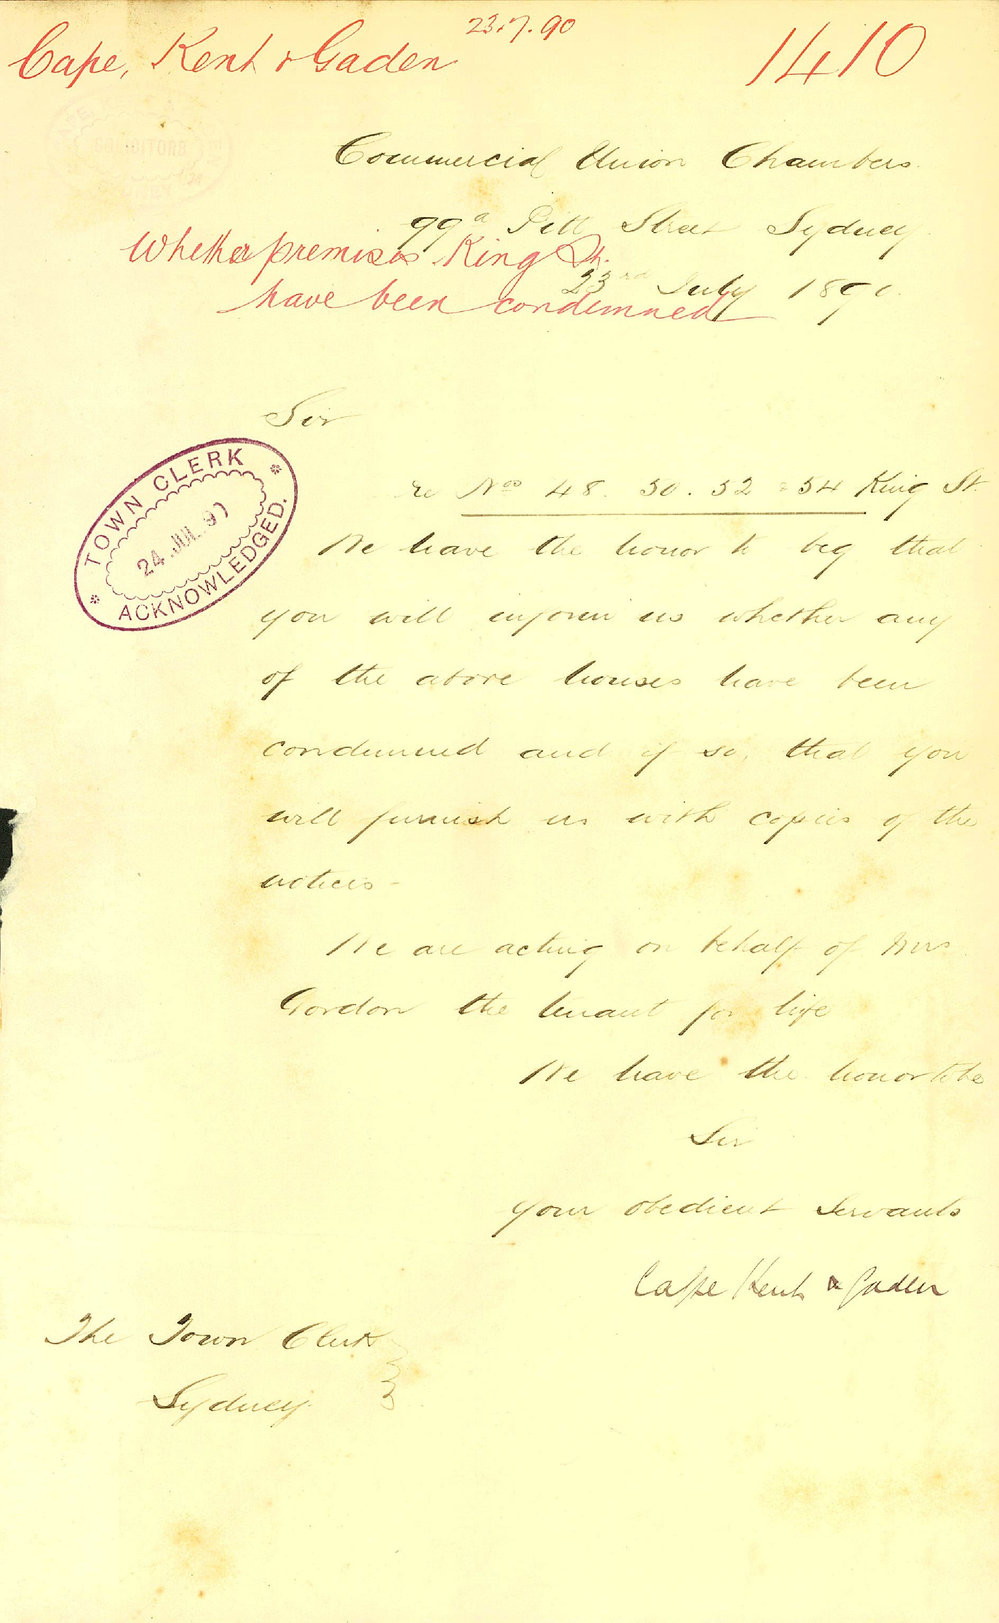 23.7.90
Cape, Kent & Gaden
1410
SOLICITORS
Commercial Union Chambers
99a Pitt Street Sydney
Whether premises King St.
23rd July 1890.
have been condemned
Sir
TOWN CLERK
24 JUL 90
ACKNOWLEDGED.
re Nos 48. 50. 52 & 54 King St.
We have the honor to beg that
you will inform us whether any
of the above houses have been
condemned and if so, that you
will furnish us with copies of the
notices -
We are acting on behalf of Mrs
Gordon the tenant for life
We have the honor to be
Sir
your obedient servants
Cape Kent & Gaden
The Town Clerk
Sydney